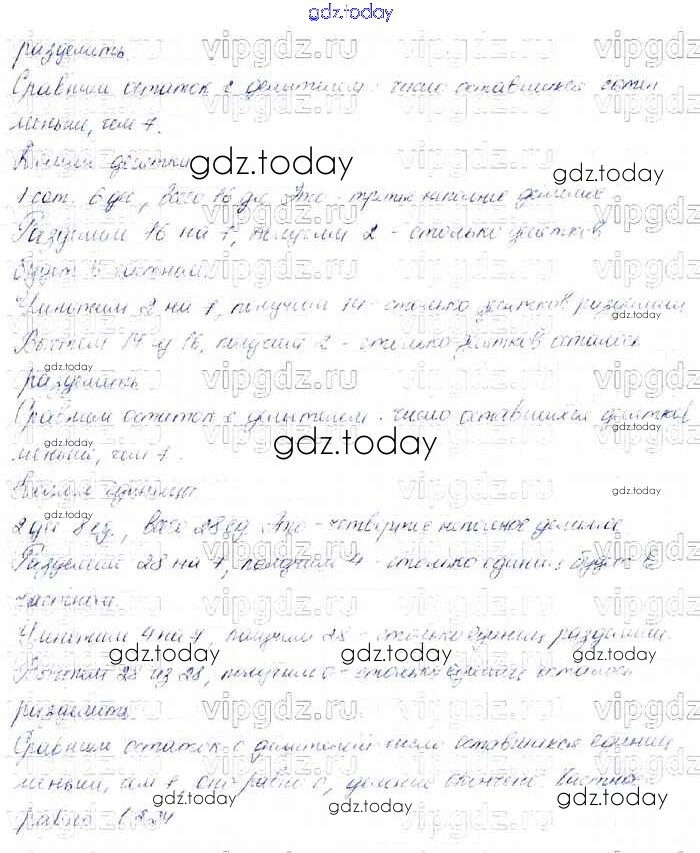 gdz.today
разделить.
Сравним остаток с делителем: число оставшихся сотен
меньше, чем 7.
десятки
1 сот. 6 дес., всего 16 дес. Это - третье неполное делимое
Разделим 16 на 7, получим 2 - столько десятков
будет в частном.
Умножим 2 на 7, получим 14 - столько десятков разделили
Вычтем 14 из 16, получим 2 - столько десятков осталось
разделить.
Сравним остаток с делителем: число оставшихся десятков
меньше, чем 7.
единицы
2 дес. 8 ед., всего 28 ед. Это - четвертое неполное делимое
Разделим 28 на 7, получим 4 - столько единиц будет в
частном.
Умножим 4 на 7, получим 28 - столько единиц разделили.
Вычтем 28 из 28, получим 0 - столько единиц осталось
разделить.
Сравним остаток с делителем: число оставшихся единиц
меньше, чем 7, оно равно 0, деление окончено. Частное
равно